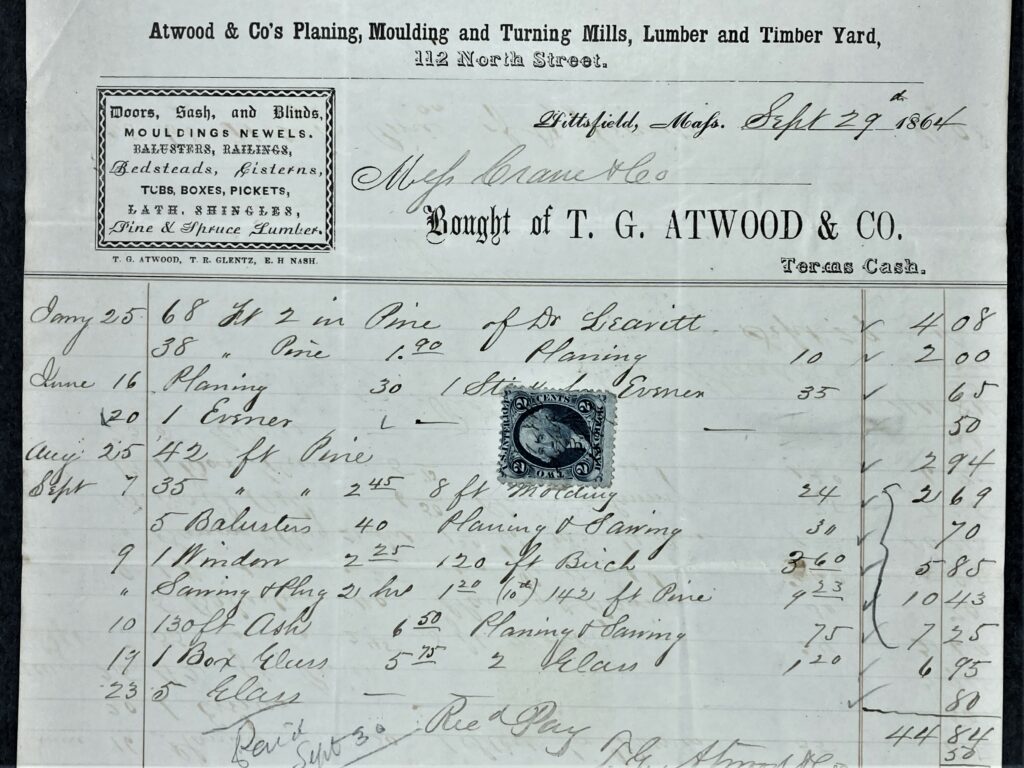 Atwood & Co's Planing, Moulding and Turning Mills, Lumber and Timber Yard,
112 North Street.
Doors, Sash, and Blinds,
MOULDINGS NEWELS.
BALUSTERS, RAILINGS,
Bedsteads, Cisterns,
TUBS, BOXES, PICKETS,
LATH, SHINGLES,
Pine & Spruce Lumber.
T. G. ATWOOD, T. R. GLENTZ, E. H NASH.
Pittsfield, Mass. Sept 29th 1864
Mess Crane & Co
Bought of T. G. ATWOOD & CO.
Terms Cash.
Jany 25 68 ft 2 in Pine of Dr Leavitt 4 08
38 " Pine 1.90 Planing 10 2 00
June 16 Planing 30 1 35 65
20 1 50
Aug 25 42 ft Pine 2 94
Sept 7 35 " " 2 45 8 ft Molding 24 2 69
5 Balusters 40 Planing & Sawing 30 70
9 1 Window 2 25 120 ft Birch 3 60 5 85
" Sawing & Plug 2 hrs 1 20 (10th) 142 ft Pine 9 23 10 43
10 130 ft Ash 6 50 Planing & Sawing 75 7 25
19 1 Box Glass 5 75 2 Glass 1,20 6 95
23 5 Glass — 80
44 84
50
Rec'd Pay
T. G. Atwood & Co
Paid
Sept 30
2 CENTS 2
INTER. REV.
TWO